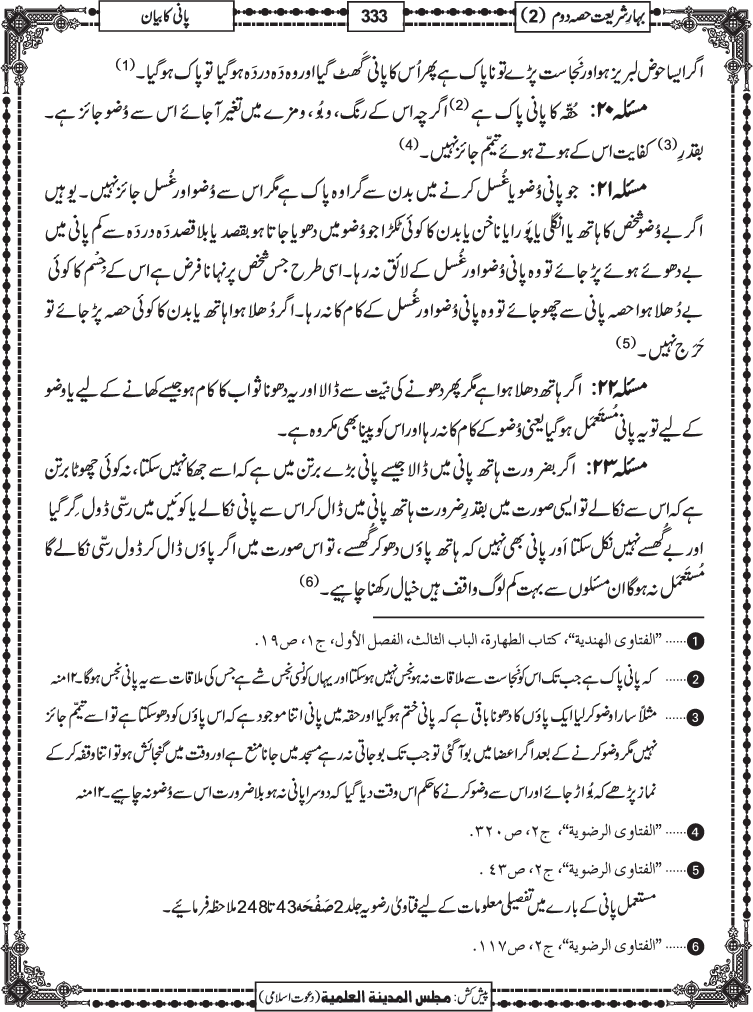 بہارِ شریعت حصہ دوم (2)
333
پانی کا بیان
اگر ایسا حوض لبریز ہو اور نَجاست پڑے تو ناپاک ہے پھر اُس کا پانی گَھٹ گیا اور وہ دَہ در دَہ ہو گیا تو پاک ہو گیا۔ (1)
مسئلہ ۲۰: حُقّہ کا پانی پاک ہے (2) اگرچہ اس کے رنگ، و بُو، و مزے میں تغیر آ جائے اس سے وُضو جائز ہے۔
بقدرِ (3) کفایت اس کے ہوتے ہوئے تیمّم جائز نہیں۔ (4)
مسئلہ ۲۱: جو پانی وُضو یا غُسل کرنے میں بدن سے گرا وہ پاک ہے مگر اس سے وُضو اور غُسل جائز نہیں۔ یوہیں
اگر بے وُضو شخص کا ہاتھ یا انگلی یا پَورا یا ناخن یا بدن کا کوئی ٹکڑا جو وُضو میں دھویا جاتا ہو بقصد یا بلا قصد دَہ در دَہ سے کم پانی میں
بے دھوئے ہوئے پڑ جائے تو وہ پانی وُضو اور غُسل کے لائق نہ رہا۔ اسی طرح جس شخص پر نہانا فرض ہے اس کے جِسْم کا کوئی
بے دُھلا ہوا حصہ پانی سے چھو جائے تو وہ پانی وُضو اور غُسل کے کام کا نہ رہا۔ اگر دُھلا ہوا ہاتھ یا بدن کا کوئی حصہ پڑ جائے تو
حَرَج نہیں۔ (5)
مسئلہ ۲۲: اگر ہاتھ دھلا ہوا ہے مگر پھر دھونے کی نیّت سے ڈالا اور یہ دھونا ثواب کا کام ہو جیسے کھانے کے لیے یا وضو
کے لیے تو یہ پانی مُستَعمَل ہو گیا یعنی وُضو کے کام کا نہ رہا اور اس کو پینا بھی مکروہ ہے۔
مسئلہ ۲۳: اگر بضرورت ہاتھ پانی میں ڈالا جیسے پانی بڑے برتن میں ہے کہ اسے جھکا نہیں سکتا، نہ کوئی چھوٹا برتن
ہے کہ اس سے نکالے تو ایسی صورت میں بقدرِ ضرورت ہاتھ پانی میں ڈال کر اس سے پانی نکالے یا کوئیں میں رسّی ڈول گِر گیا
اور بے گُھسے نہیں نکل سکتا اَور پانی بھی نہیں کہ ہاتھ پاؤں دھو کر گُھسے، تو اس صورت میں اگر پاؤں ڈال کر ڈول رسّی نکالے گا
مُستَعمَل نہ ہوگا ان مسئلوں سے بہت کم لوگ واقف ہیں خیال رکھنا چاہیے۔ (6)
1 ...... ”الفتاوی الھندیة“، کتاب الطھارة، الباب الثالث، الفصل الأول، ج١، ص١٩.
2 ...... کہ پانی پاک ہے جب تک اس کو نَجاست سے ملاقات نہ ہو نجس نہیں ہو سکتا اور یہاں کونسی نجس شے ہے جس کی ملاقات سے یہ پانی نجس ہوگا۔ ۱۲ منہ
3 ...... مثلاً سارا وضو کر لیا ایک پاؤں کا دھونا باقی ہے کہ پانی ختم ہو گیا اور حقہ میں پانی اتنا موجود ہے کہ اس پاؤں کو دھو سکتا ہے تو اسے تیمّم جائز
نہیں مگر وضو کرنے کے بعد اگر اعضا میں بو آ گئی تو جب تک بو جاتی نہ رہے مسجد میں جانا منع ہے اور وقت میں گنجائش ہو تو اتنا وقفہ کر کے
نماز پڑھے کہ بُو اڑ جائے اور اس سے وضو کرنے کا حکم اس وقت دیا گیا کہ دوسرا پانی نہ ہو بلا ضرورت اس سے وُضو نہ چاہیے۔ ۱۲ منہ
4 ...... ”الفتاوی الرضویة“، ج٢، ص٣٢٠.
5 ...... ”الفتاوی الرضویة“، ج٢، ص٤٣ .
مستعمل پانی کے بارے میں تفصیلی معلومات کے لیے فتاویٰ رضویہ جلد 2 صَفْحَہ 43 تا 248 ملاحظہ فرمائیے۔
6 ...... ”الفتاوی الرضویة“، ج٢، ص١١٧.
پیش کش: مجلس المدینة العلمیة (دعوت اسلامی)